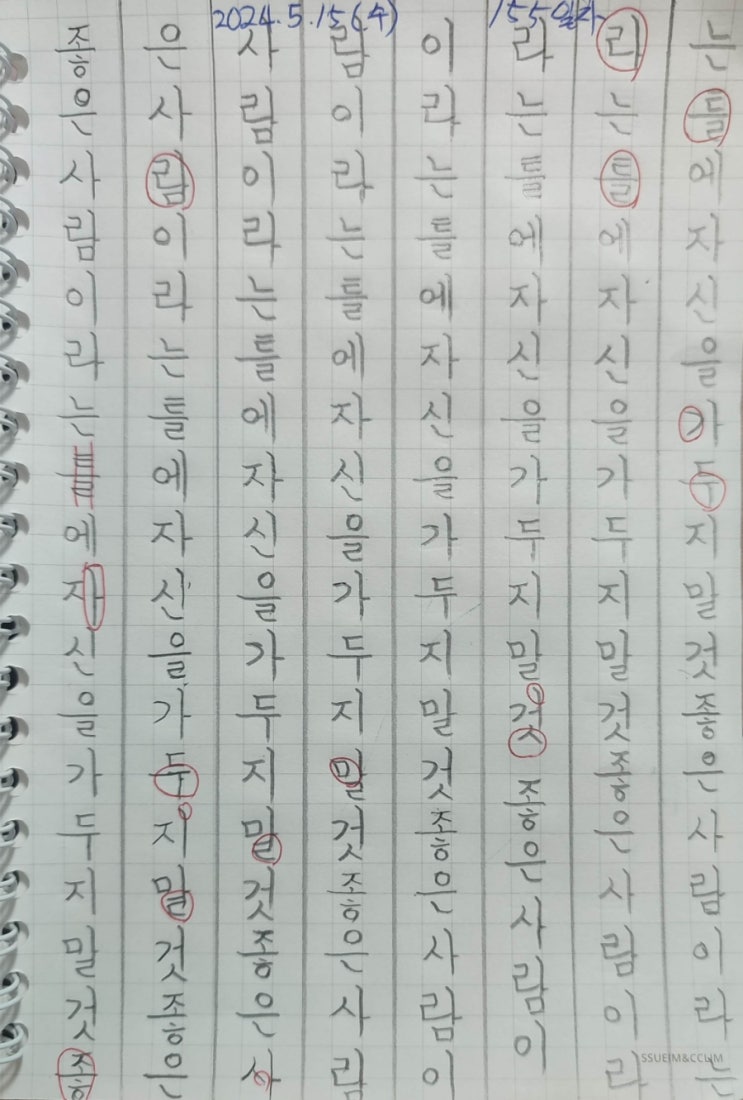 2024. 5. 15(수) 155일차
좋은사람이라는틀에자신을가두지말것좋
은사람이라는틀에자신을가두지말것좋은
사람이라는틀에자신을가두지말것좋은사
람이라는틀에자신을가두지말것좋은사람
이라는틀에자신을가두지말것좋은사람이
라는틀에자신을가두지말것 좋은사람이
라는틀에자신을가두지말것좋은사람이라
는틀에자신을가두지말것좋은사람이라는
SSUEIM&CCLIM